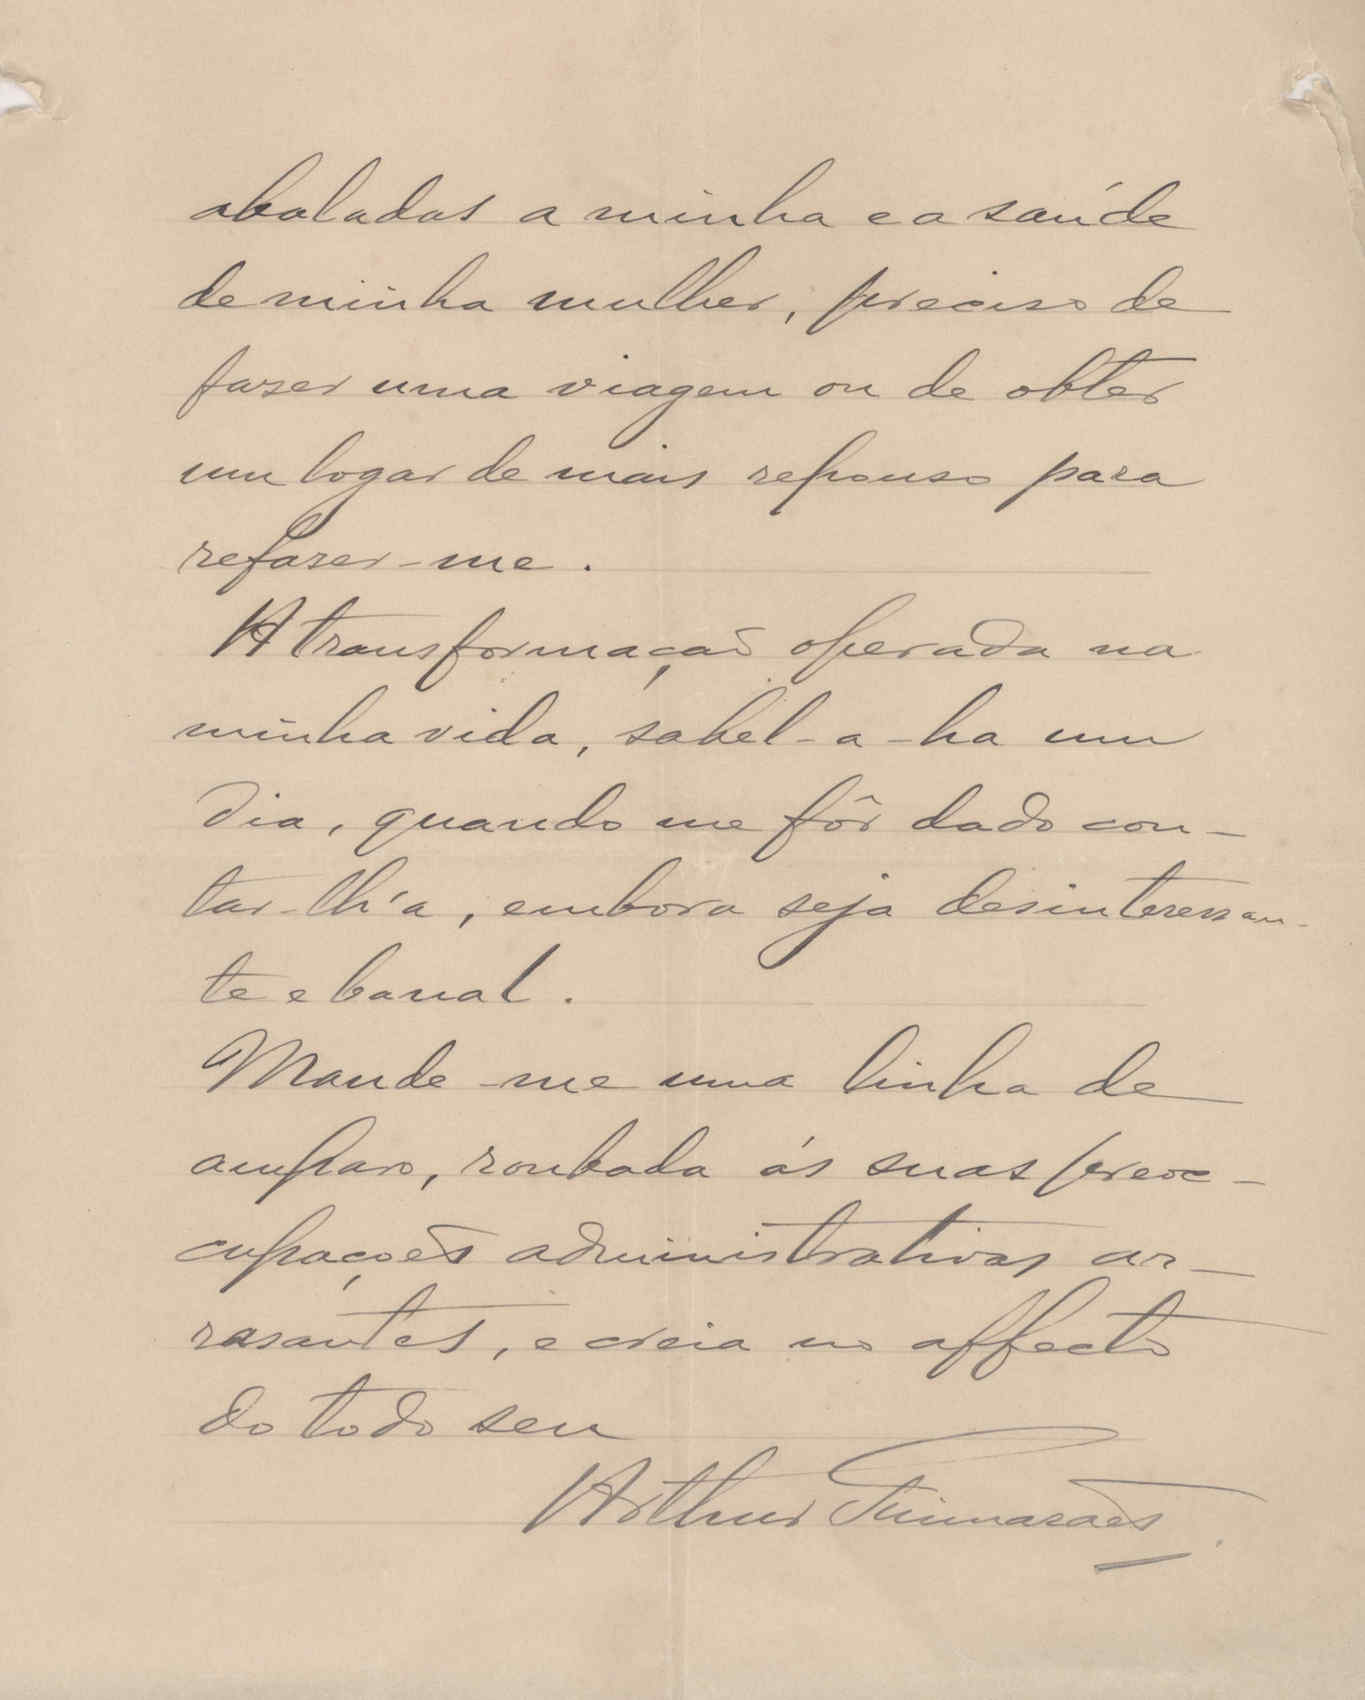 abaladas a minha e a saúde
de minha mulher, preciso de
fazer uma viagem ou de obter
um logar de mais repouso para
refazer-me.
A transformação operada na
minha vida, sabel-a-ha um
dia, quando me fôr dado con-
tar-lh'a, embora seja desinteressan-
te e banal.
Mande-me uma linha de
amparo, roubada ás suas preoc-
cupações administrativas ar-
rasantes, e creia no affecto
do todo seu
Arthur Guimarães.